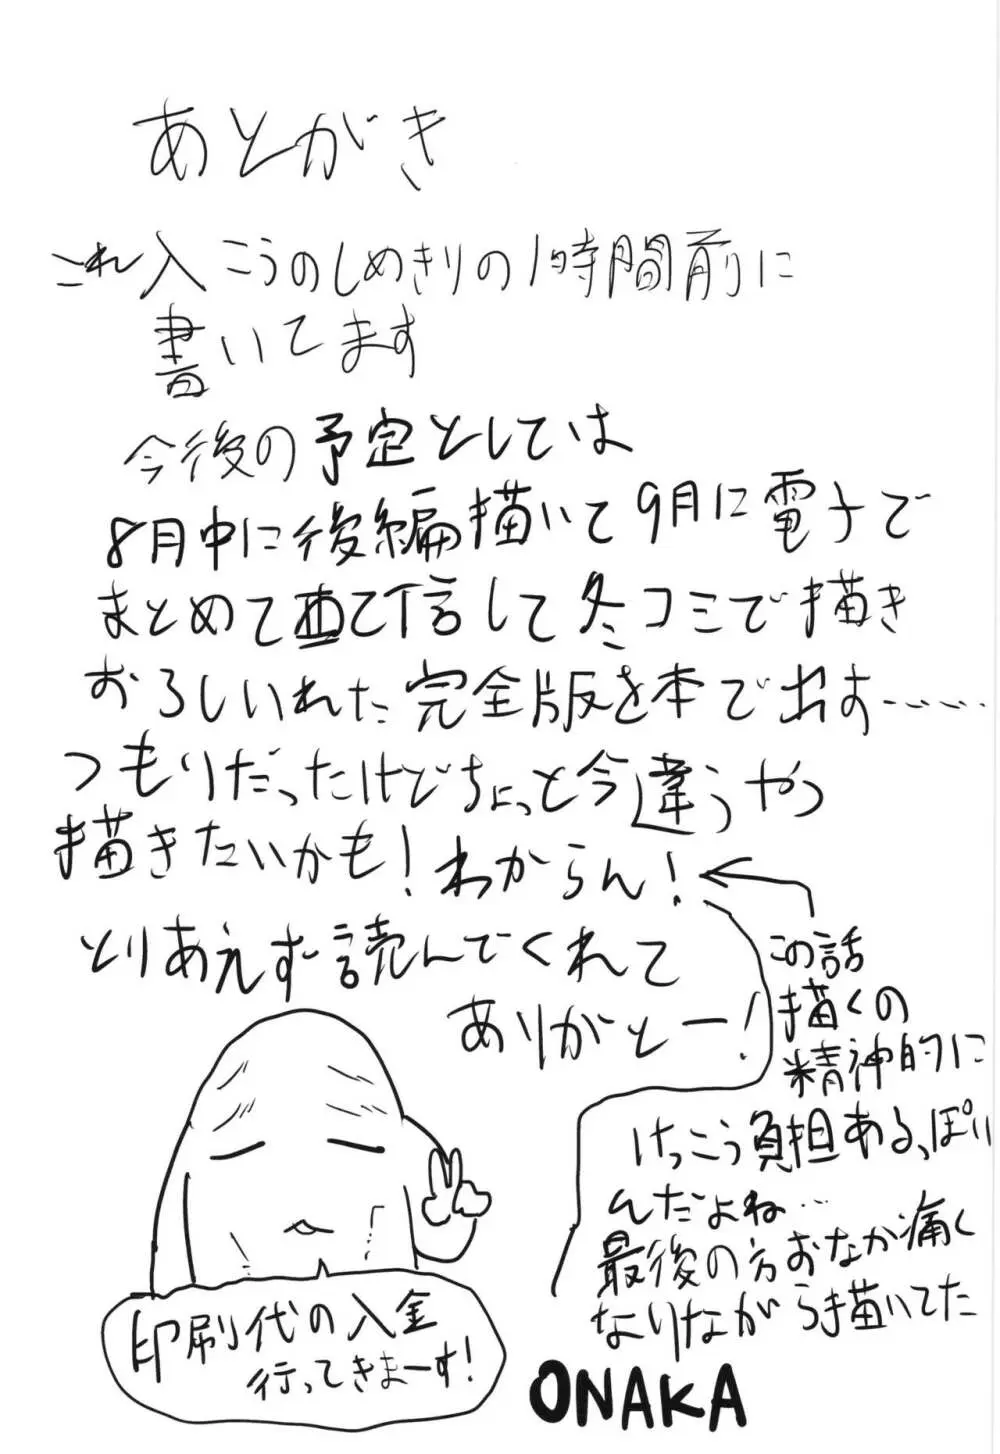 あとがき
これ入こうのしめきりの1時間前に
書いてます
今後の予定としては
8月中に後編描いて9月に電子で
まとめて配信して冬コミで描き
おろしいれた完全版を本で出す……
つもりだったけどちょっと今違うやつ
描きたいかも!わからん!
とりあえず読んでくれて
ありがとー!
この話
描くの
精神的に
けっこう負担あるっぽい
んだよね…
最後の方おなか痛く
なりながら描いてた
ONAKA
印刷代の入金
行ってきまーす!